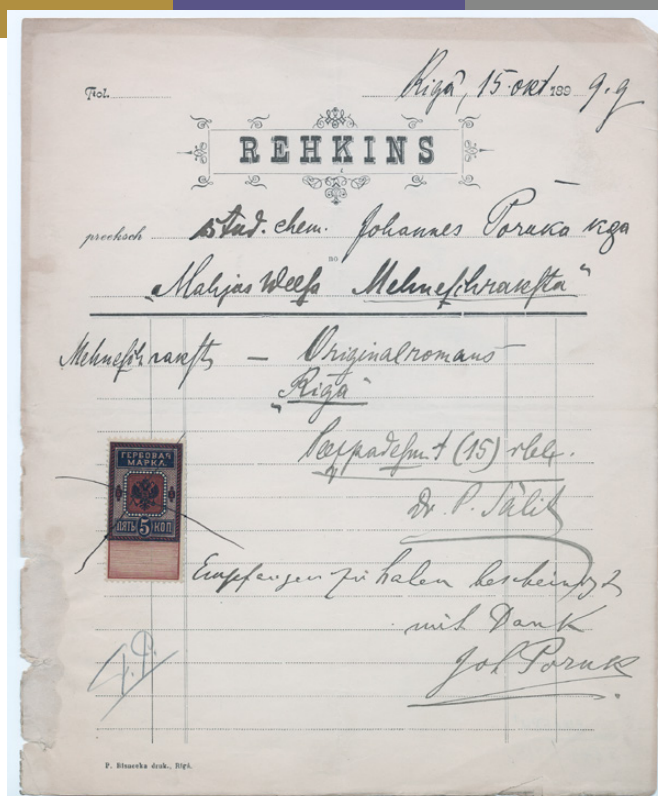 Fol.
Rigâ, 15. okt 1899. g
REHKINS
preeksch stud. chem. Johannes Poruka kga
no
„Mahjas Weesa Mehneschraksta“
Mehneschraksts — Originalromans
„Rigâ“
Peezpadesmit (15) rbl.
Dr. P. Sălit
ГЕРБОВАЯ
МАРКА.
ПЯТЬ 5 КОП
Empfangen zu haben bescheinigt
mit Dank
Joh Poruk
druk., Rigâ.